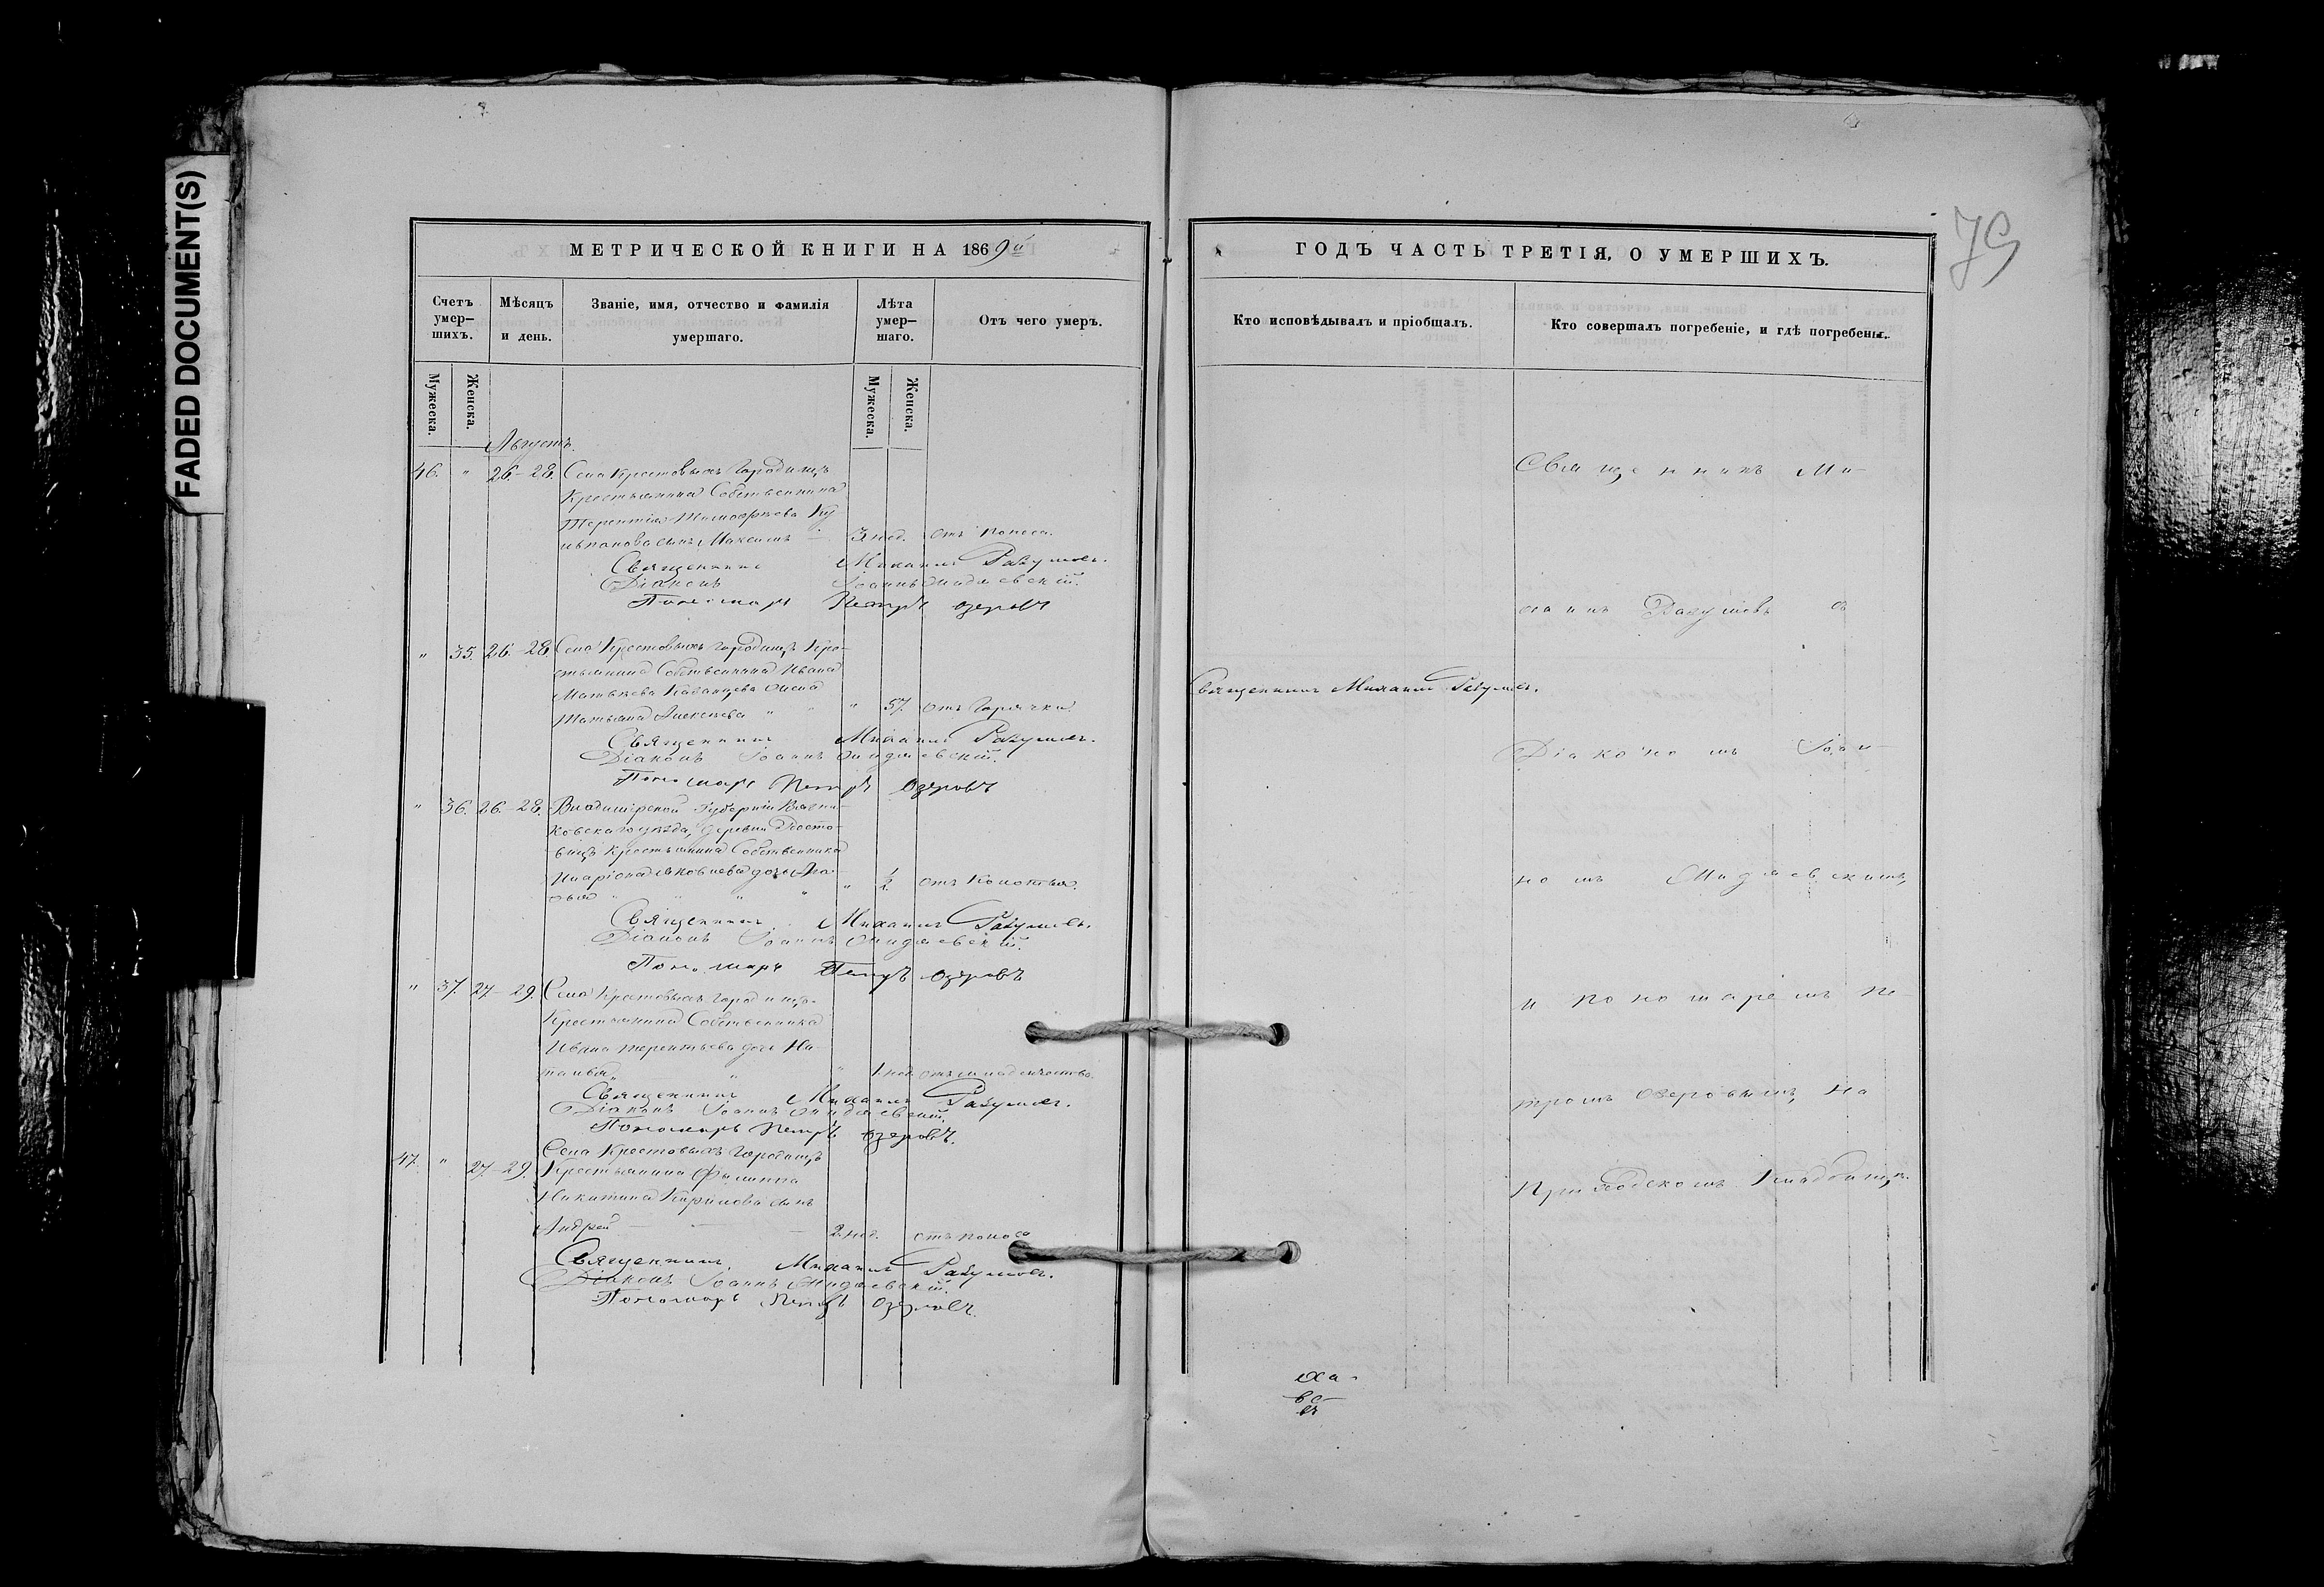 FADED DOCUMENT(S)
МЕТРИЧЕСКОЙ КНИГИ НА 1869й
Счетъ умер-шихъ.
Мѣсяцъ и день.
Званіе, имя, отчество и фамилія умершаго.
Лѣта умер-шаго.
Отъ чего умеръ.
Мужеска.
Женска.
Мужеска.
Женска.
Августъ.
46. " 26.-28. Села Крестовыхъ Городищъ
Крестьянина Собственника
Терентія Тимофѣева
сынъ Максимъ 3 нед. отъ поноса.
Священникъ Михаилъ Разумовъ.
Діаконъ Іоаннъ
Пономарь Петръ Озеровъ
" 35. 26.-28. Села Крестовыхъ Городищъ Кре-
стьянина Собственника Ивана
Матвѣева Казанцева жена
Татьяна Алексѣева " " " 57. отъ Горячки.
Священникъ Михаилъ Разумовъ.
Діаконъ Іоаннъ
Пономарь Петръ Озеровъ
" 36. 26.-28. Владимірской Губерніи Вязни-
ковскаго уѣзда, деревни
Крестьянина Собственника
дочь
" " " " 1/2 отъ Колотья.
Священникъ Михаилъ Разумовъ.
Діаконъ Іоаннъ
Пономарь Петръ Озеровъ
" 37. 27-29. Села Крестовыхъ Городищъ
Крестьянина Собственника
Ивана Терентьева дочь На-
талья " " 1 нед. отъ младенчества.
Священникъ Михаилъ Разумовъ.
Діаконъ Іоаннъ
Пономарь Петръ Озеровъ.
Села Крестовыхъ Городищъ
47. " 27-29. Крестьянина Филиппа
Никитина Кирилова сынъ
Андрей 2 нед. отъ поноса
Священникъ Михаилъ Разумовъ.
Діаконъ Іоаннъ
Пономарь Петръ Озеровъ.
ГОДЪ ЧАСТЬ ТРЕТІЯ, О УМЕРШИХЪ.
79
Кто исповѣдывалъ и пріобщалъ.
Кто совершалъ погребеніе, и гдѣ погребены.
Священникъ Ми-
хаилъ Разумовъ съ
Священникъ Михаилъ Разумовъ.
Діакономъ Іоан-
номъ
и пономаремъ Пе-
тромъ Озеровымъ, на
приходскомъ Кладбищѣ.